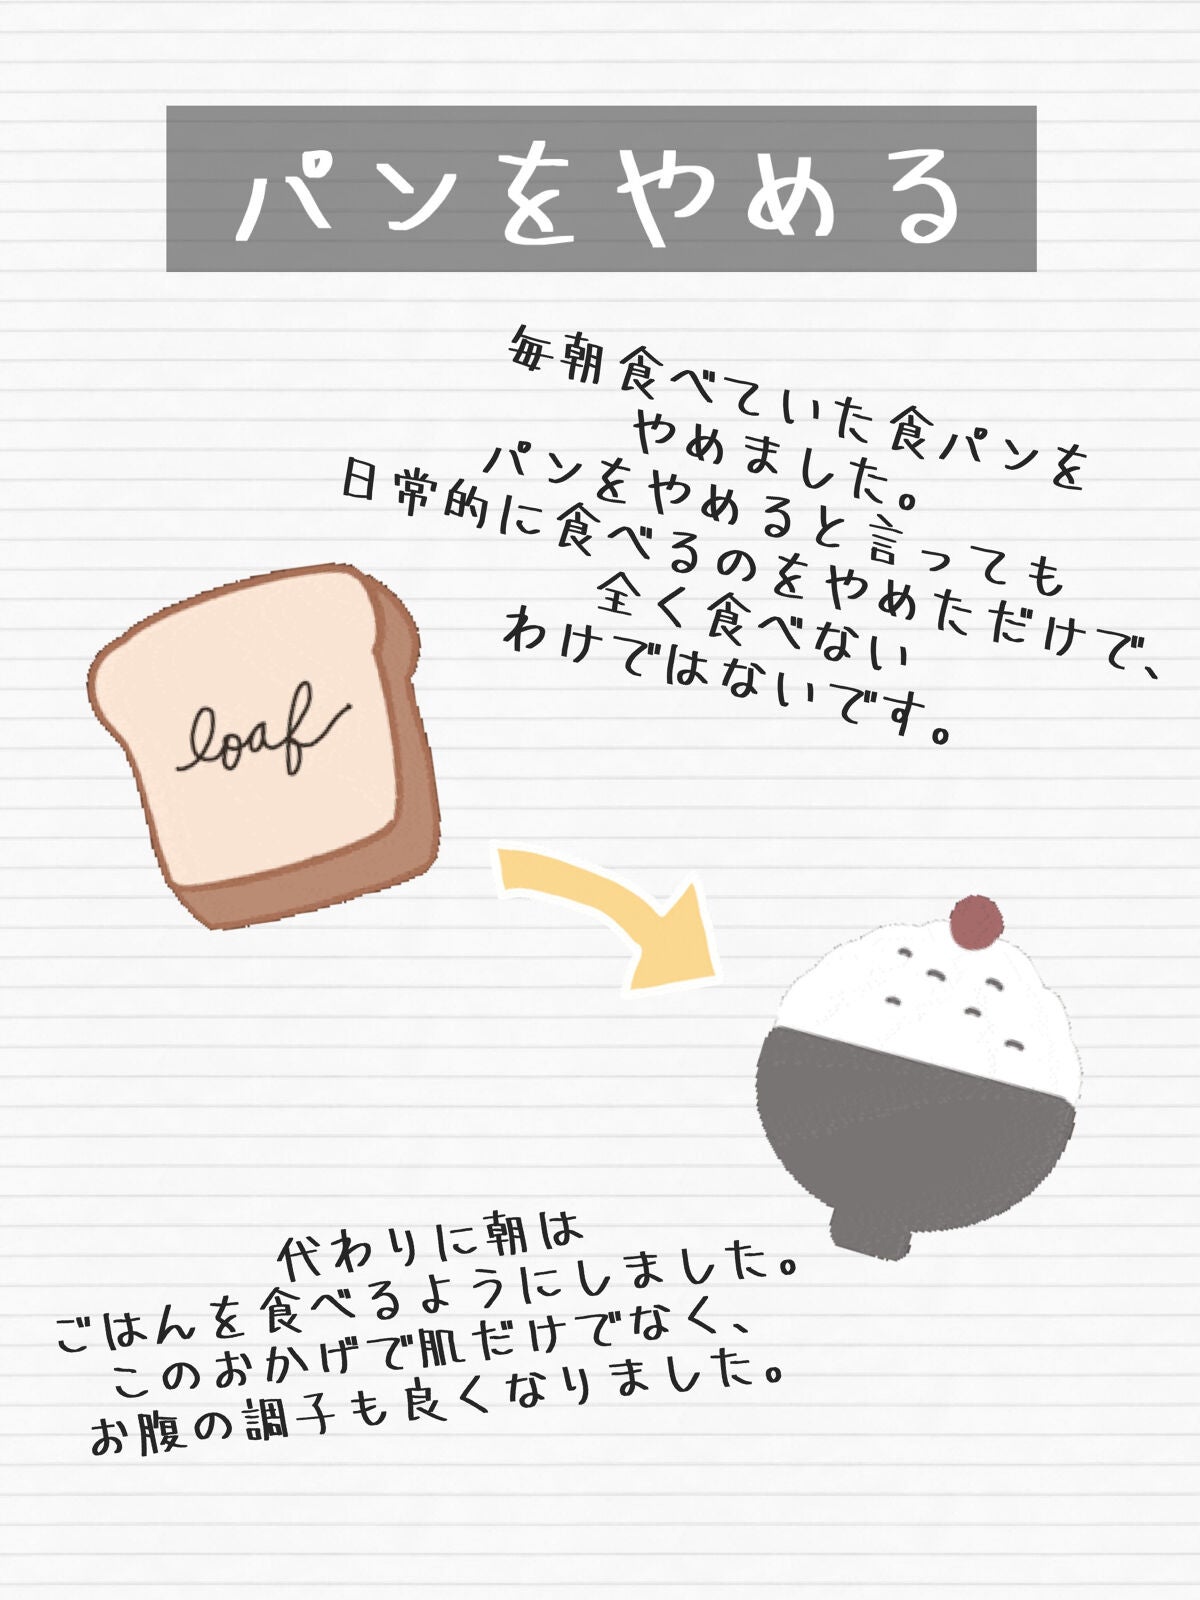 パンをやめる
毎朝食べていた食パンを
やめました。
パンをやめると言っても
日常的に食べるのをやめただけで、
全く食べない
わけではないです。
loaf
代わりに朝は
ごはんを食べるようにしました。
このおかげで肌だけでなく、
お腹の調子も良くなりました。